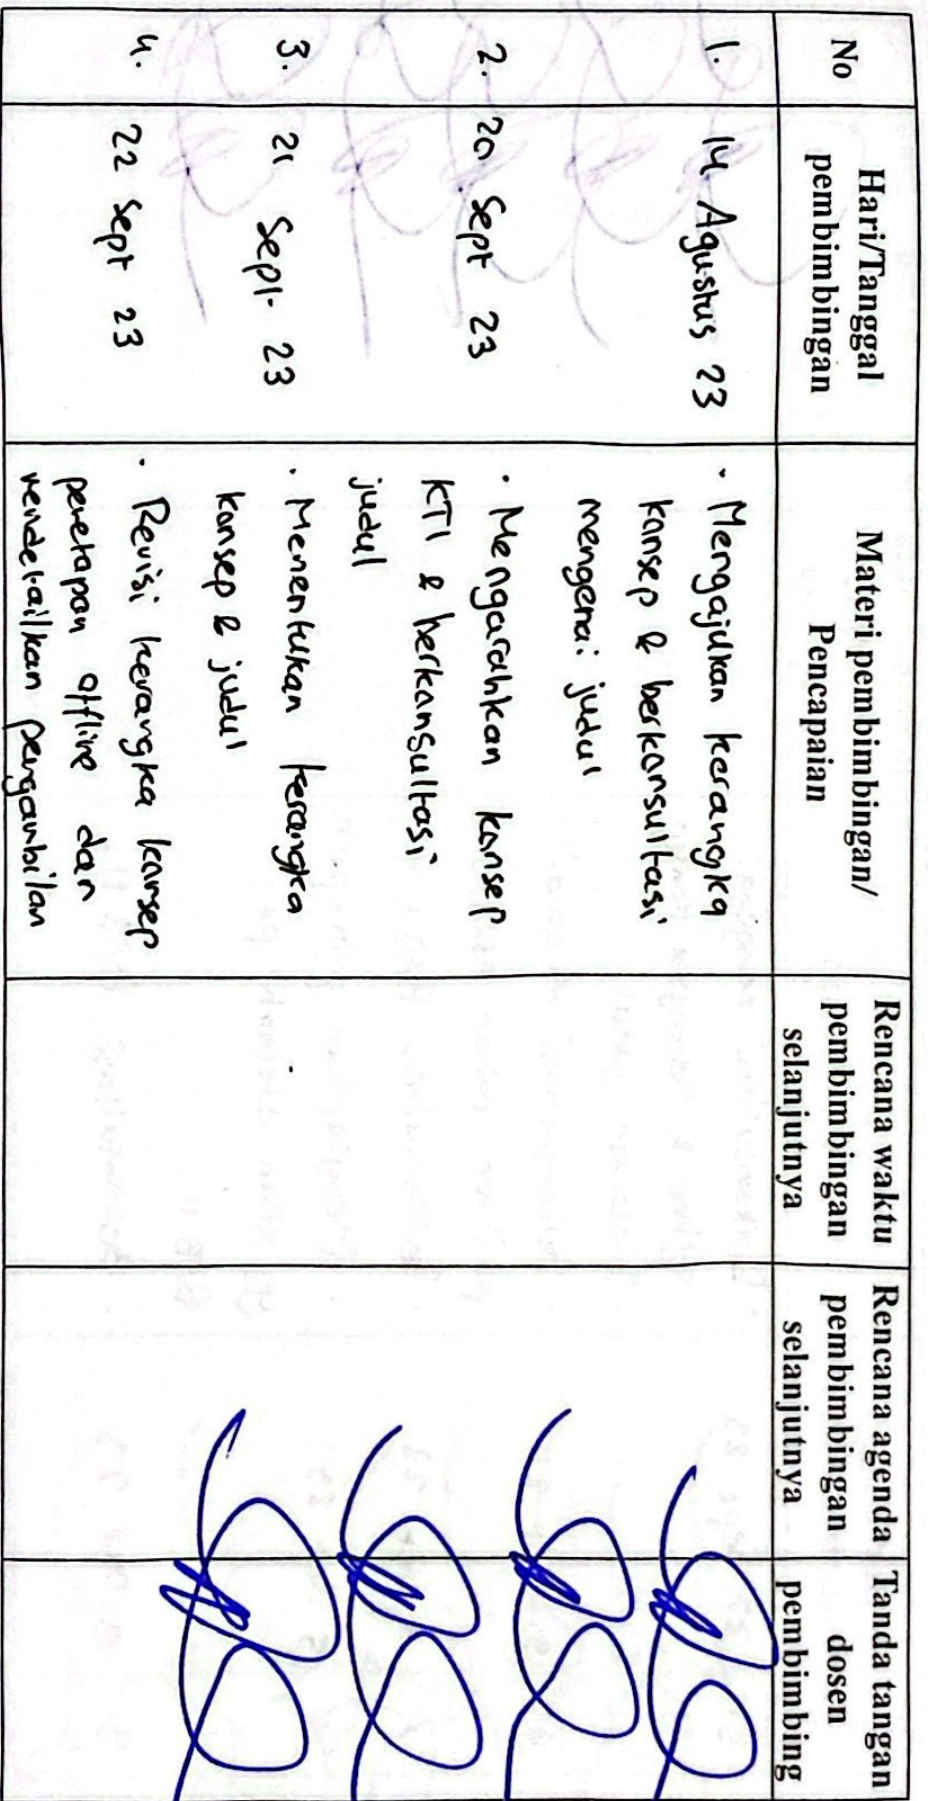 No
Hari/Tanggal
pembimbingan
Materi pembimbingan/
Pencapaian
Rencana waktu
pembimbingan
selanjutnya
Rencana agenda
pembimbingan
selanjutnya
Tanda tangan
dosen
pembimbing
1.
14 Agustus 23
· Mengajukan kerangka
konsep & berkonsultasi
mengenai judul
2.
20 Sept 23
· Mengarahkan konsep
KTI & berkonsultasi
judul
3.
21 Sept 23
· Menentukan kerangka
konsep & judul
4.
22 Sept 23
· Revisi kerangka konsep
penetapan offline dan
mendetailkan pengambilan